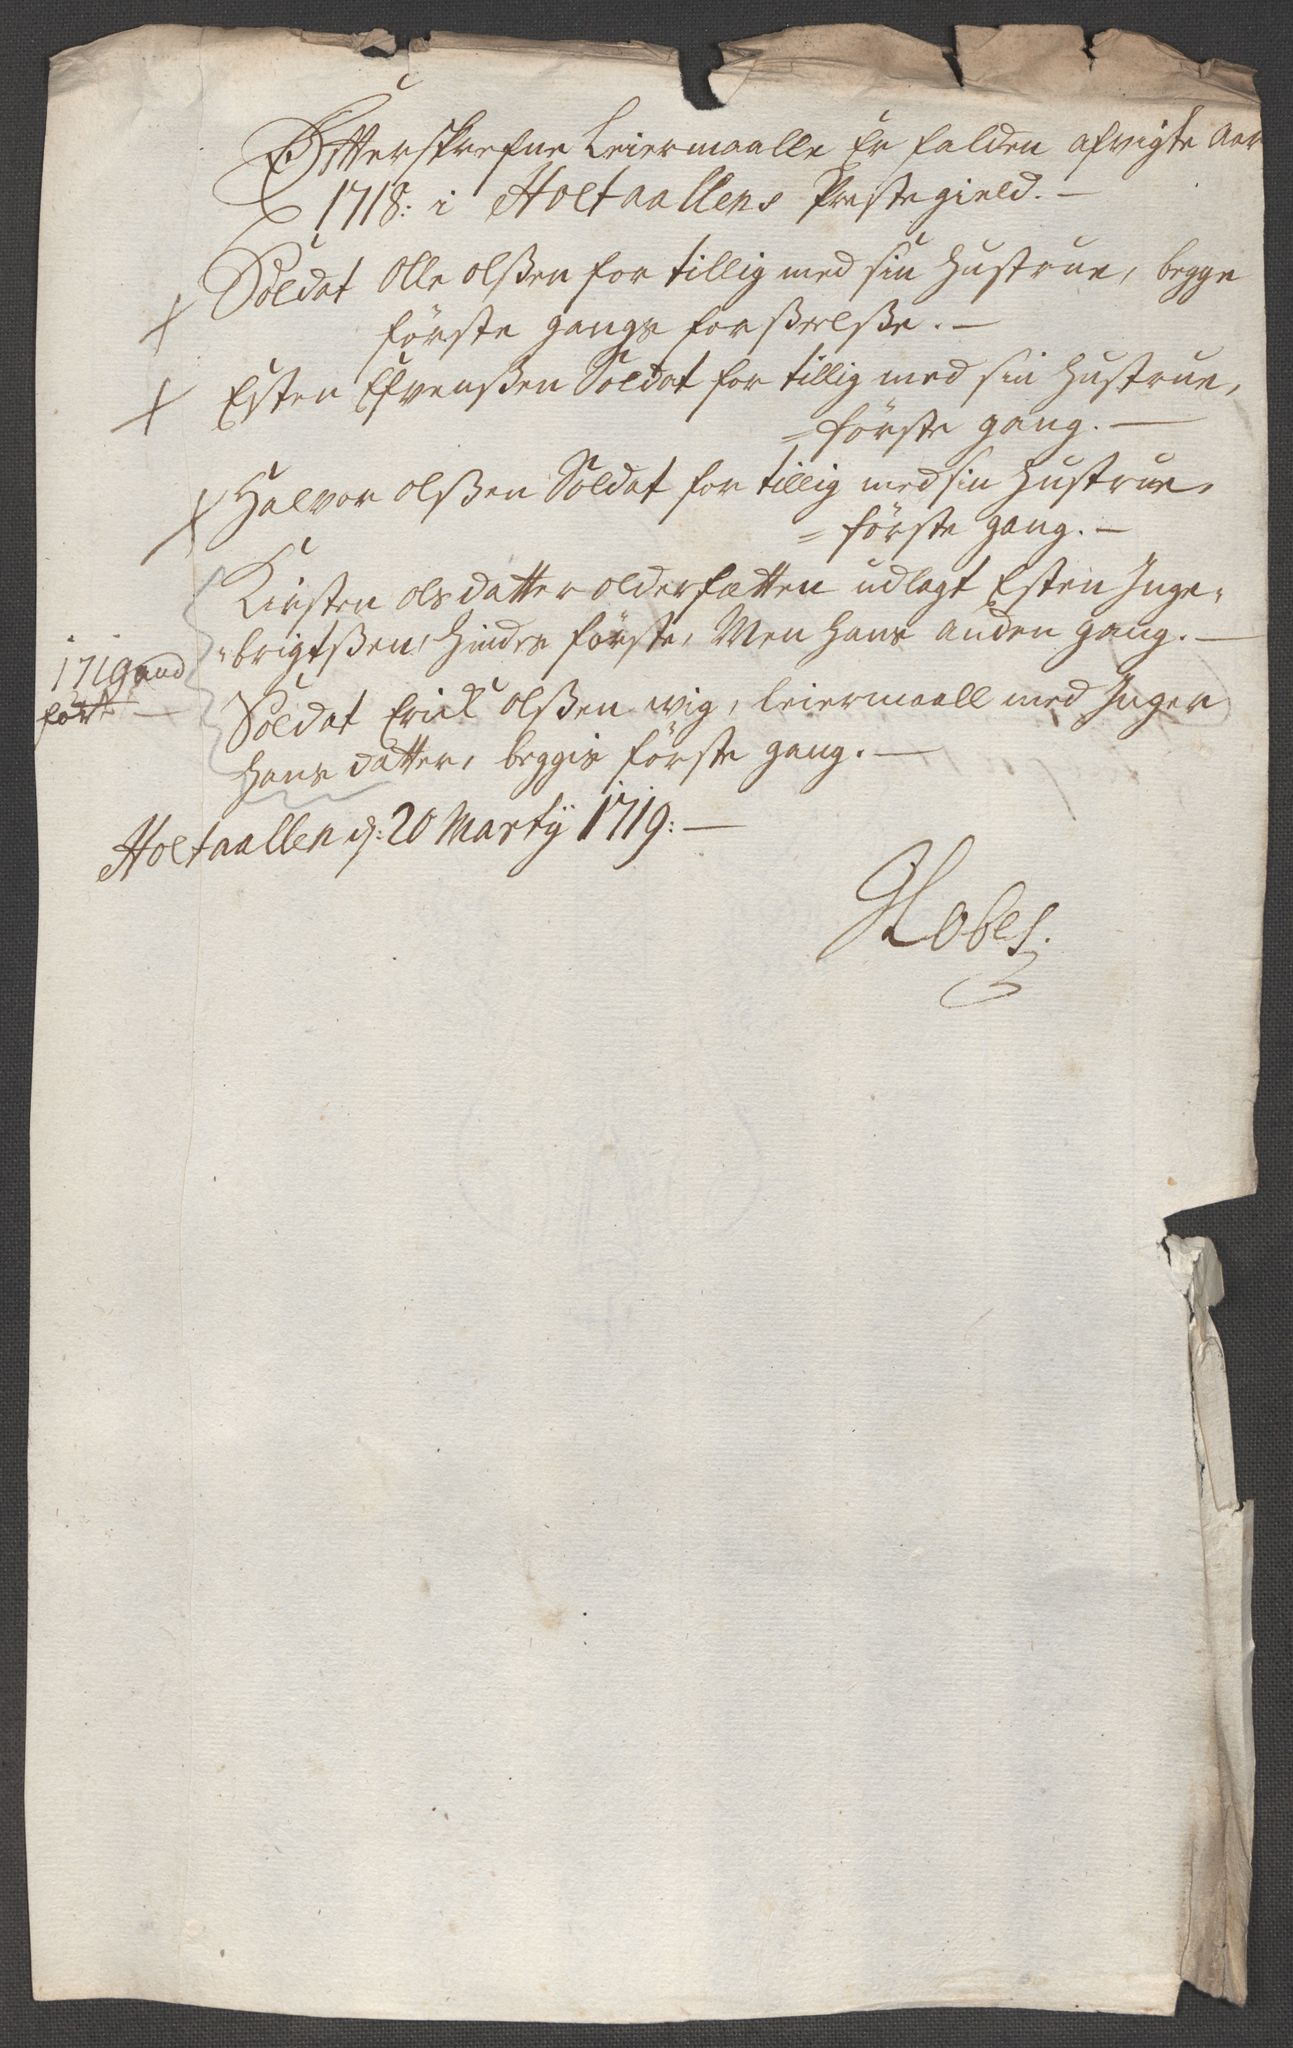 Efterskrefne Leiermaalle Er falden afvigte Aar
1718: i Holtaallens Prestegield. —
Soldat Olle olßen for tillig med sin Hustrue, begge
første gangs forßeelße. —
Esten Efvenßen Soldat for tillig med sin Hustrue,
= første gang. —
Halvor olßen Soldat for tillig med sin Hustrue,
= første gang. —
Kirsten olsdatter udlagt Esten Inge-
-brigtßen, hindes første, Men hans anden gang. —
1719 and
ført —
Soldat Erick olßen wig, leiermaall med Inger
hans datter, beggis første gang. —
Holtaallen d: 20 Martij 1719: —